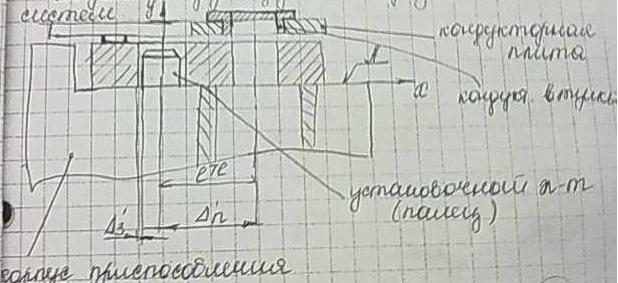 системы
y
кондукторная
плита
x
кондукт. втулки
l±e
установочный эл-т
(палец)
Δ'з
Δ'п
корпус приспособления